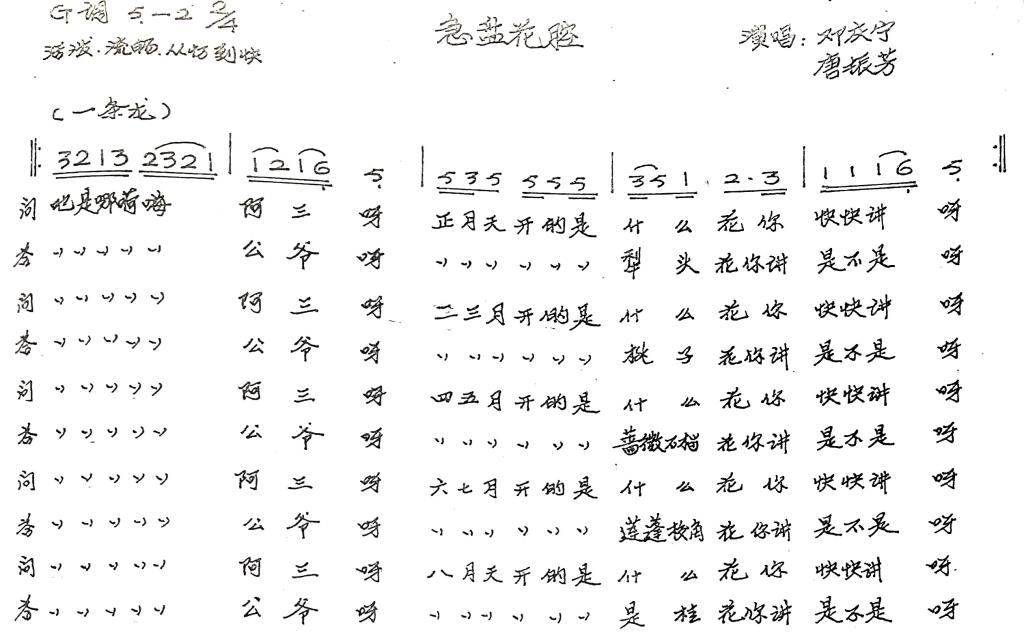 G调 5—2 2/4 急盐花腔 演唱：邓庆宁
活泼.流畅.从忉到快 唐振芳
(一条龙)
‖: 3213 2321 | 1216 5 | 535 555 | 351 . 2.3 | 1116 5 :‖
问 吔是哪嗬嗨 阿三 呀 正月天开的是 什么花你 快快讲 呀
答 〃〃〃〃〃 公爷 呀 〃〃〃〃〃〃 犁头花你讲 是不是 呀
问 〃〃〃〃〃 阿三 呀 二三月开的是 什么花你 快快讲 呀
答 〃〃〃〃〃 公爷 呀 〃〃〃〃〃〃 桃子花你讲 是不是 呀
问 〃〃〃〃〃 阿三 呀 四五月开的是 什么花你 快快讲 呀
答 〃〃〃〃〃 公爷 呀 〃〃〃〃〃〃 蔷薇石榴花你讲 是不是 呀
问 〃〃〃〃〃 阿三 呀 六七月开的是 什么花你 快快讲 呀
答 〃〃〃〃〃 公爷 呀 〃〃〃〃〃〃 莲蓬菱角花你讲 是不是 呀
问 〃〃〃〃〃 阿三 呀 八月天开的是 什么花你 快快讲 呀.
答 〃〃〃〃〃 公爷 呀 〃〃〃〃〃〃 是桂花你讲 是不是 呀